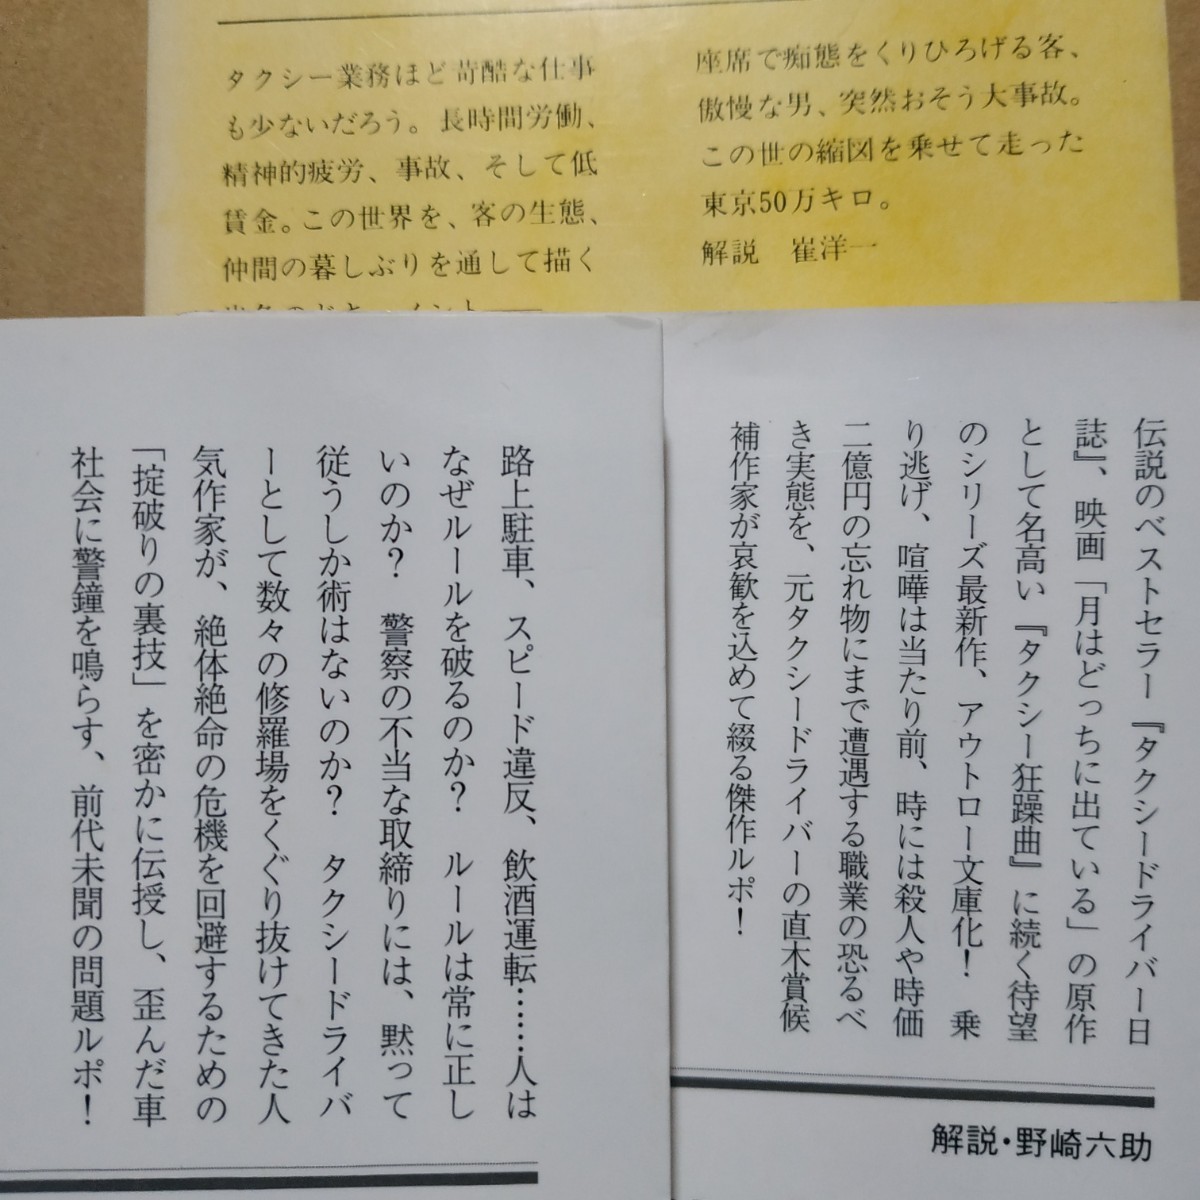 タクシー業務ほど苛酷な仕事
も少ないだろう。長時間労働、
精神的疲労、事故、そして低
賃金。この世界を、客の生態、
仲間の暮しぶりを通して描く
座席で痴態をくりひろげる客、
傲慢な男、突然おそう大事故。
この世の縮図を乗せて走った
東京50万キロ。
解説　崔洋一
伝説のベストセラー『タクシードライバー日
誌』、映画「月はどっちに出ている」の原作
として名高い『タクシー狂躁曲』に続く待望
のシリーズ最新作、アウトロー文庫化！　乗
り逃げ、喧嘩は当たり前、時には殺人や時価
二億円の忘れ物にまで遭遇する職業の恐るべ
き実態を、元タクシードライバーの直木賞候
補作家が哀歓を込めて綴る傑作ルポ！
解説・野崎六助
路上駐車、スピード違反、飲酒運転……人は
なぜルールを破るのか？　ルールは常に正し
いのか？　警察の不当な取締りには、黙って
従うしか術はないのか？　タクシードライバ
ーとして数々の修羅場をくぐり抜けてきた人
気作家が、絶体絶命の危機を回避するための
「掟破りの裏技」を密かに伝授し、歪んだ車
社会に警鐘を鳴らす、前代未聞の問題ルポ！